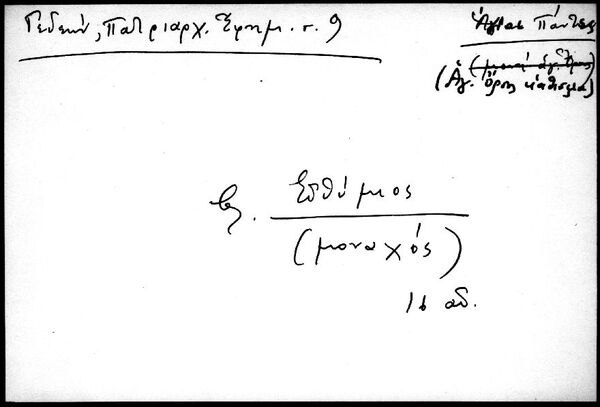 Γεδεών, Πατριαρχ. Ἐφημ. σ. 9
Ἅγιοι Πάντες
(μονή ἁγ. Ὄρους)
(Ἁγ. Ὄρος κάθισμα)
βλ. Εὐθύμιος
(μοναχός)
16 αἰ.